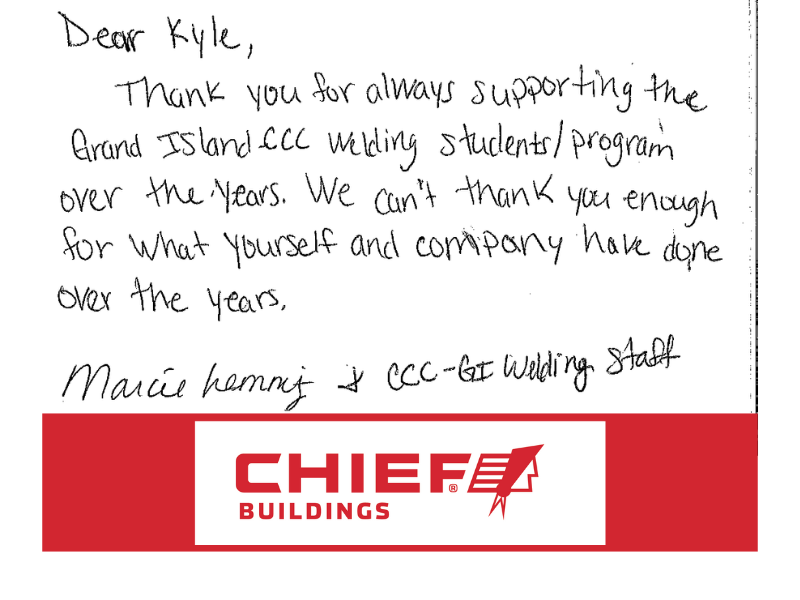 Dear Kyle,
Thank you for always supporting the
Grand Island CCC welding students/program
over the years. We can't thank you enough
for what yourself and company have done
over the years.
Marcie & CCC-GI Welding Staff
CHIEF®
BUILDINGS